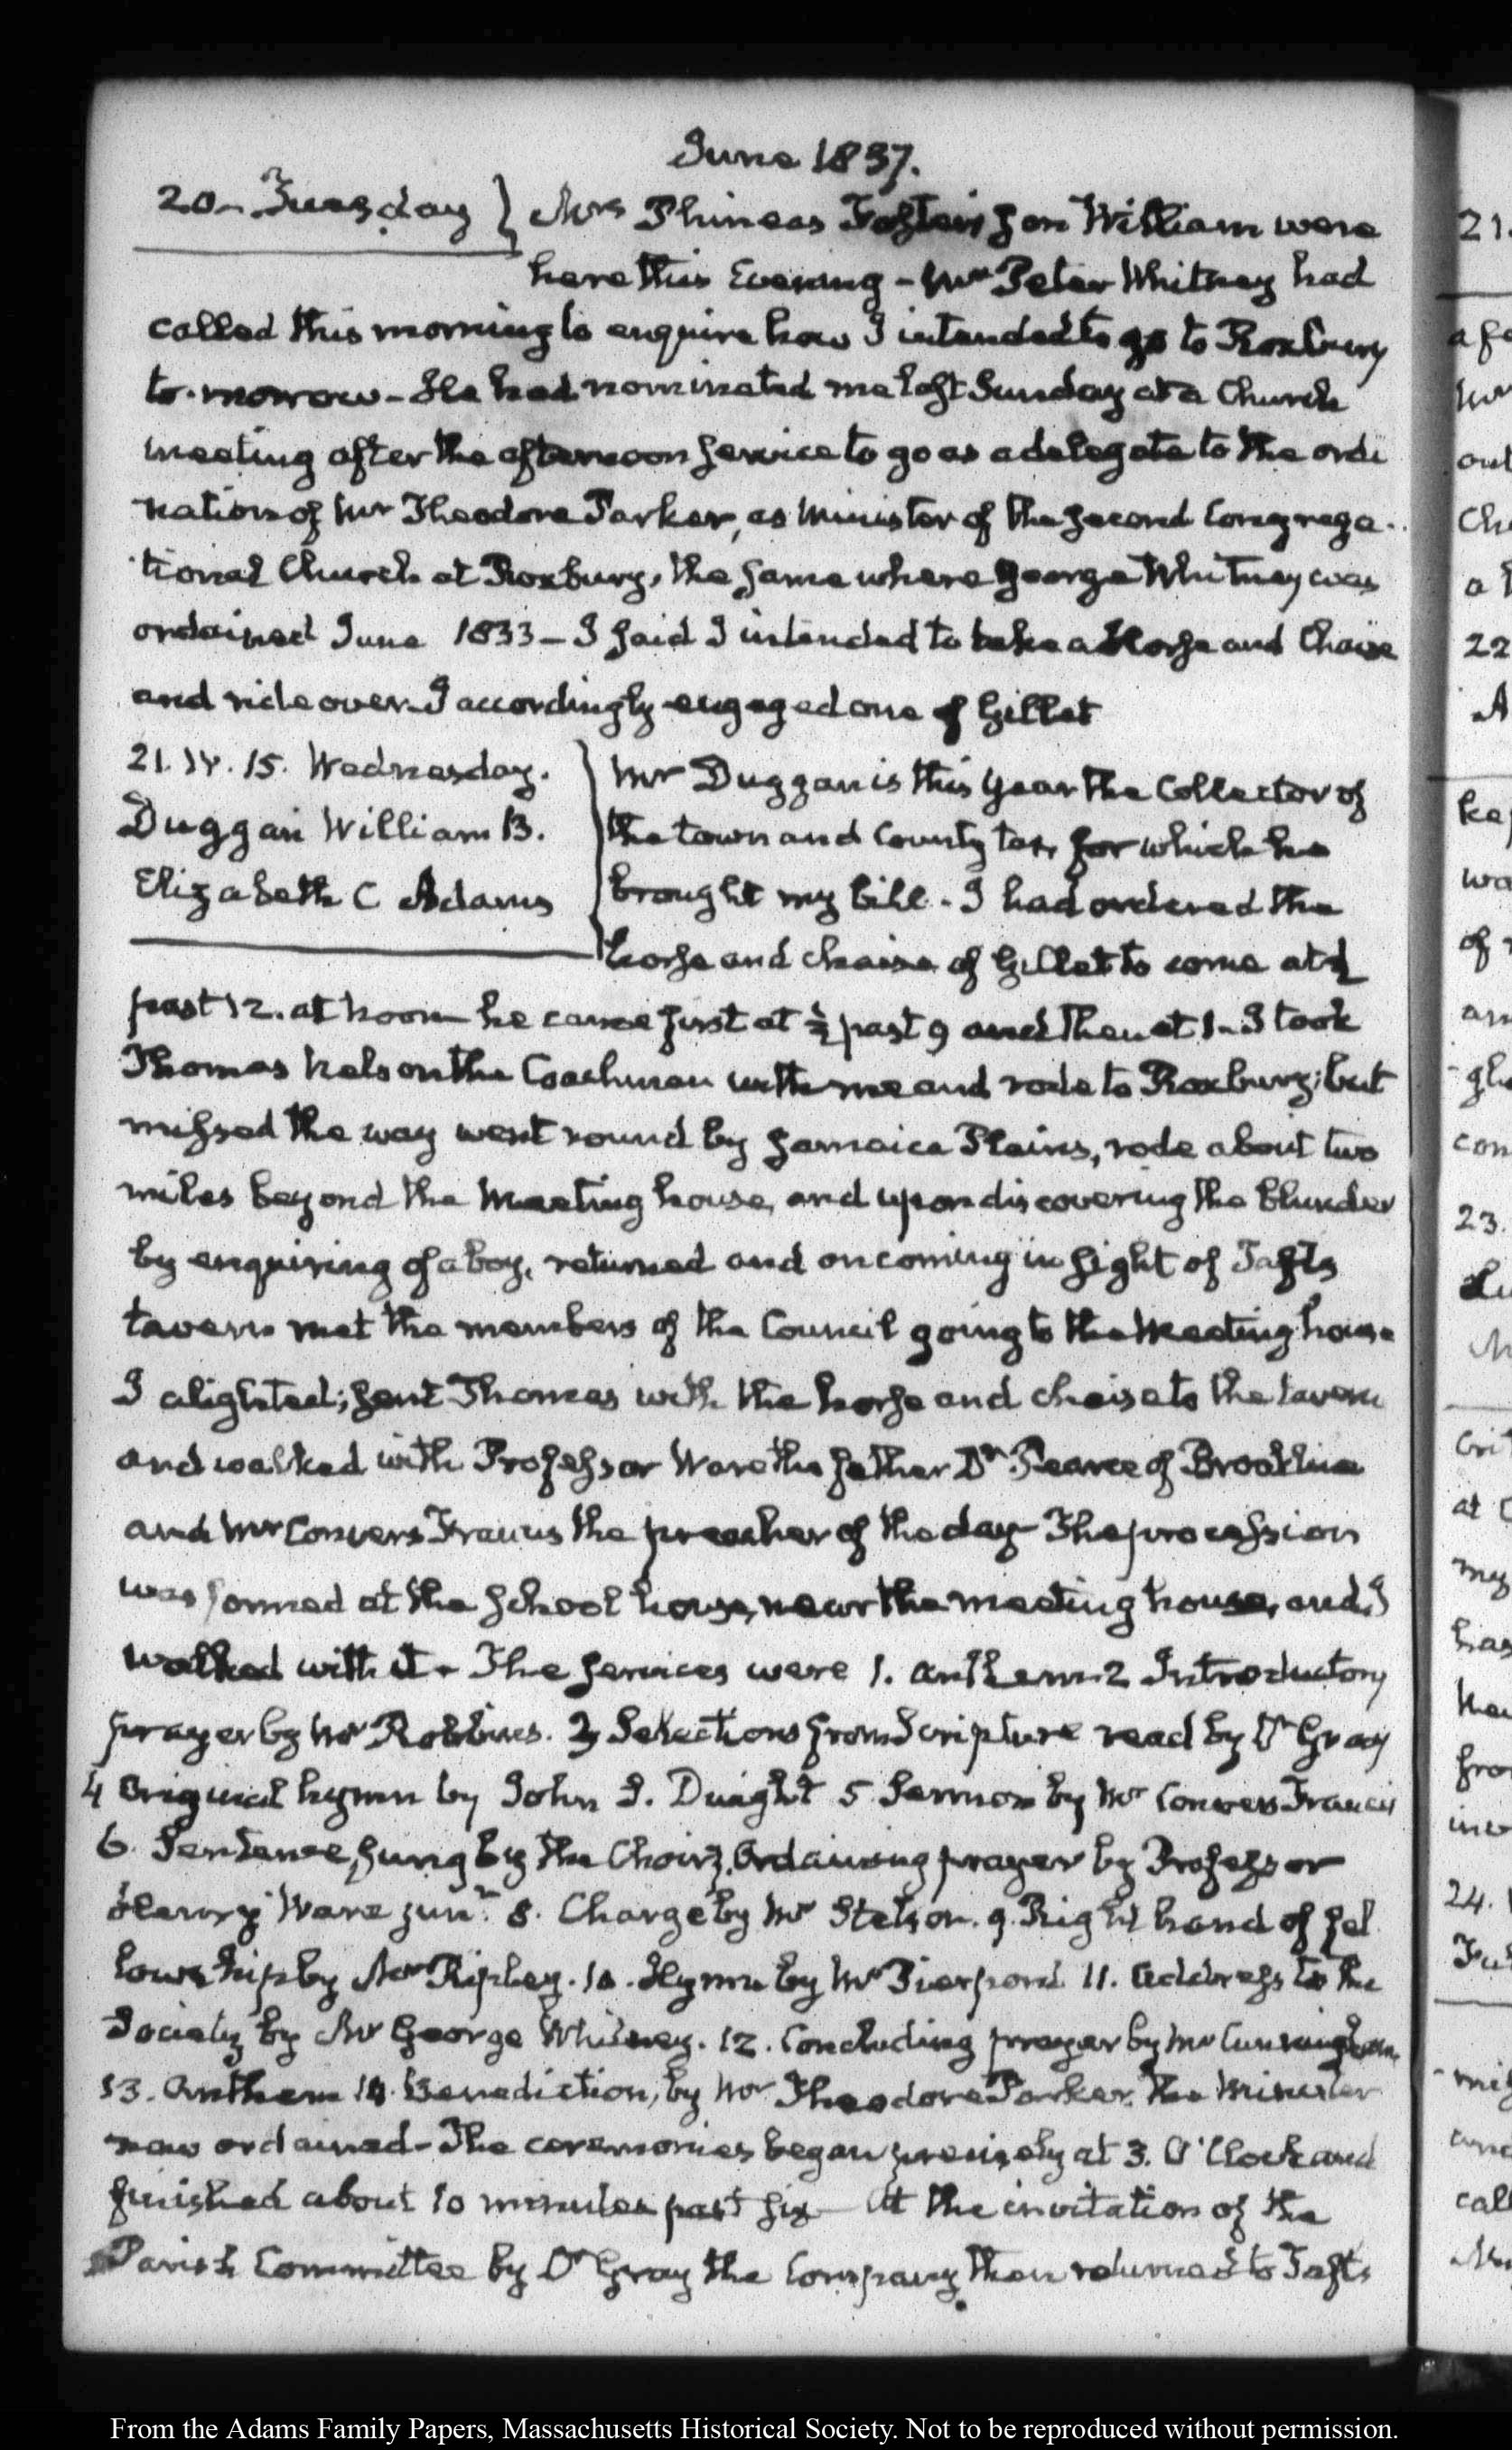 June 1837.
20. Tuesday } Mrs Phineas Foster's son William were
here this Evening - Mr Peter Whitney had
called this morning to enquire how I intended to go to Roxbury
to-morrow - He had nominated me last Sunday at a Church
meeting after the afternoon service to go as a delegate to the ordi
nation of Mr Theodore Parker, as Minister of the second Congrega-
tional Church at Roxbury, the same where George Whitney was
ordained June 1833 - I said I intended to take a Horse and Chaise
and ride over. I accordingly engaged one of Gillet
21. IV. 15. Wednesday.
Duggan William B.
Elizabeth C Adams
Mr Duggan is this year the Collector of
the town and County tax, for which he
brought my bill - I had ordered the
horse and chaise of Gillet to come at ½
past 12. at noon he came first at ½ past 9 and then at 1 - I took
Thomas Nelson the Coachman with me and rode to Roxbury; but
missed the way went round by Jamaica Plains, rode about two
miles beyond the Meeting house, and upon discovering the blunder
by enquiring of a boy, returned and on coming in sight of Tafts
tavern met the members of the Council going to the Meeting-house
I alighted; sent Thomas with the horse and chaise to the tavern
and walked with Professor Ware the father Dr Pearce of Brookline
and Mr Convers Francis the preacher of the day - The procession
was formed at the school house, near the meeting house, and I
walked with it - The services were 1. anthem 2 Introductory
prayer by Mr Robbins. 3 Selections from Scripture read by Dr Gray
4 Original hymn by John S. Dwight 5 Sermon by Mr Convers Francis
6. Sentence, sung by the Choir 7. Ordaining prayer by Professor
Henry Ware junr. 8. Charge by Mr Stetson. 9. Right hand of fel
lowship by Mr Ripley. 10. Hymn by Mr Pierpont 11. Address to the
Society by Mr George Whitney. 12. Concluding prayer by Mr Cunningham
13. Anthem 14. Benediction, by Mr Theodore Parker, the Minister
now ordained - The ceremonies began precisely at 3. O'Clock and
finished about 10 minutes past six - At the invitation of the
Parish Committee by Dr Gray the Company then returned to Tafts
21.
22
23.
24.
From the Adams Family Papers, Massachusetts Historical Society. Not to be reproduced without permission.